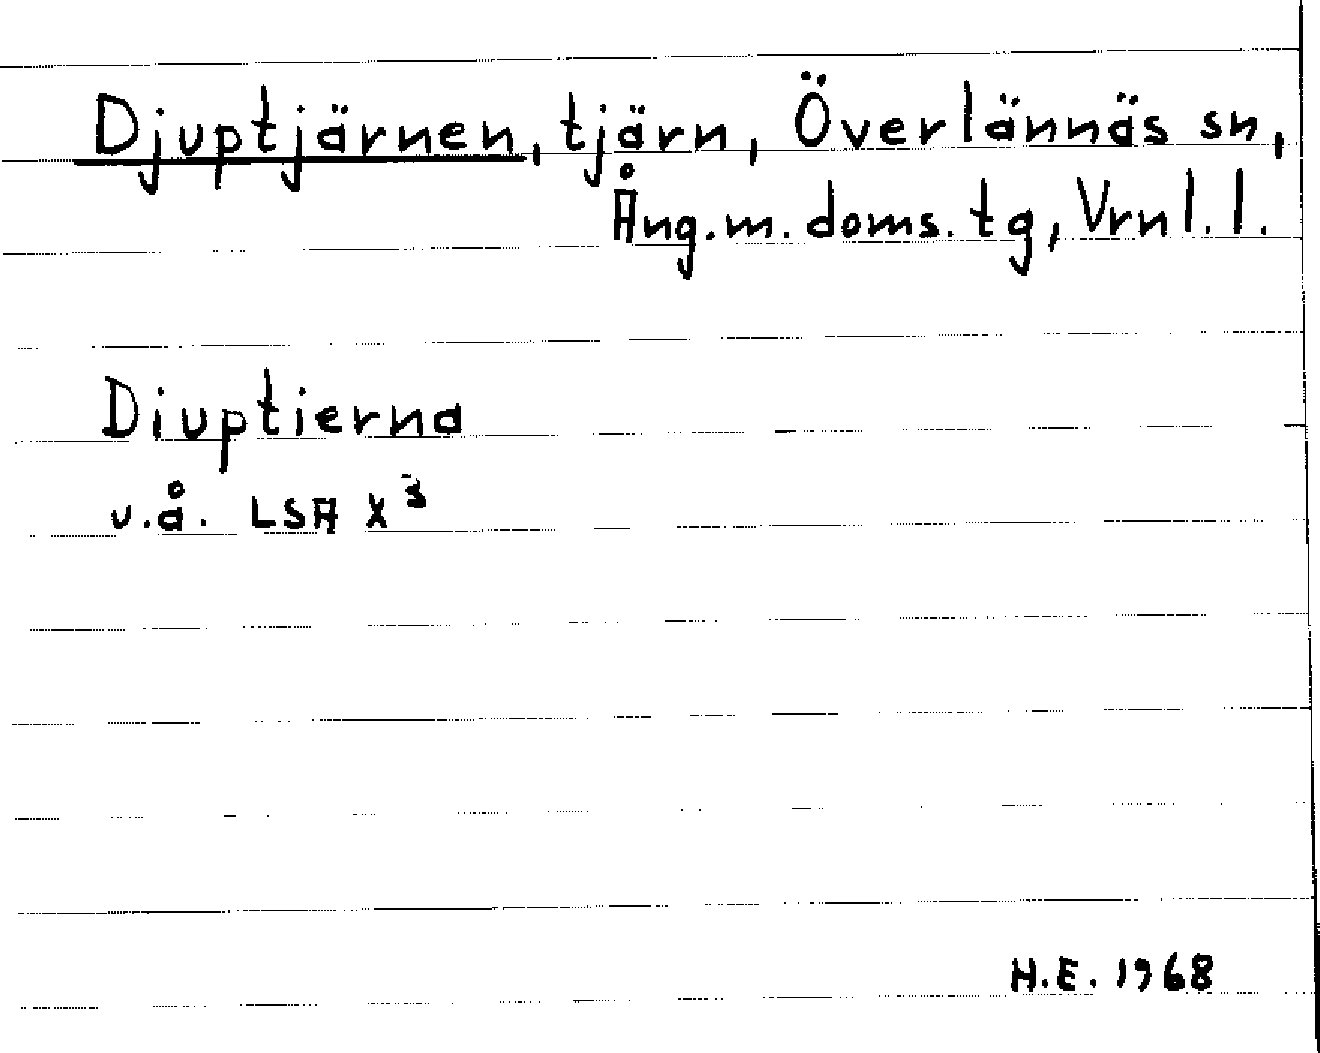 Djuptjärnen, tjärn, Överlännäs sn,
Ång.m.doms.tg, Vrnl.l.
Diuptierna
u.å. LSA X³
H.E. 1968